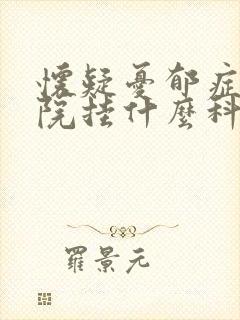 懷疑憂郁症
院挂什麼科
羅景元